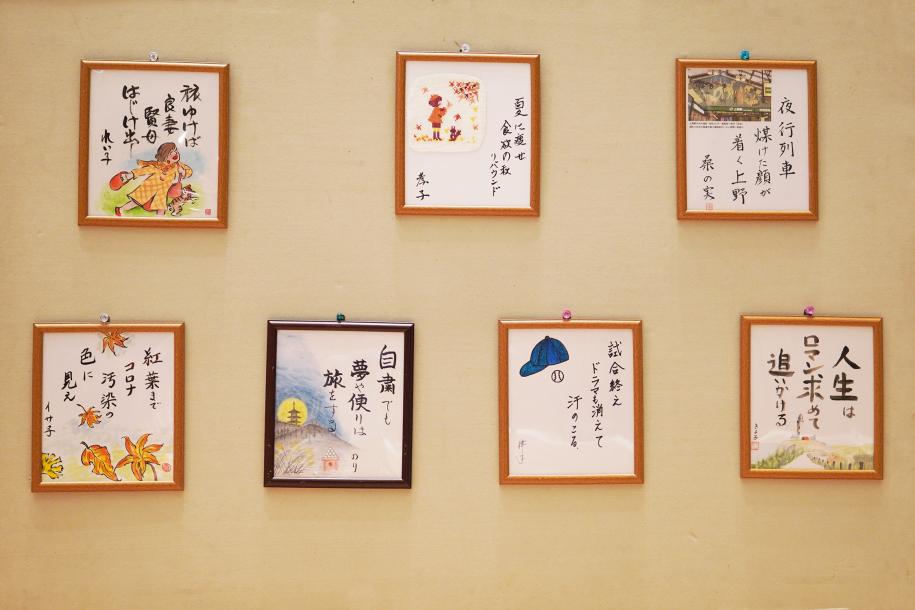 旅ゆけば
良妻
賢母
はじけ出し
れい子
夏に痩せ
食欲の秋
リバウンド
孝子
夜行列車
煤けた顔が
着く上野
桑の実
紅葉まで
コロナ
汚染の
色に
見え
イサ子
自粛でも
夢や便りは
旅をする
のり
試合終え
ドラマも消えて
汗のこる
人生は
ロマン求めて
追いかける